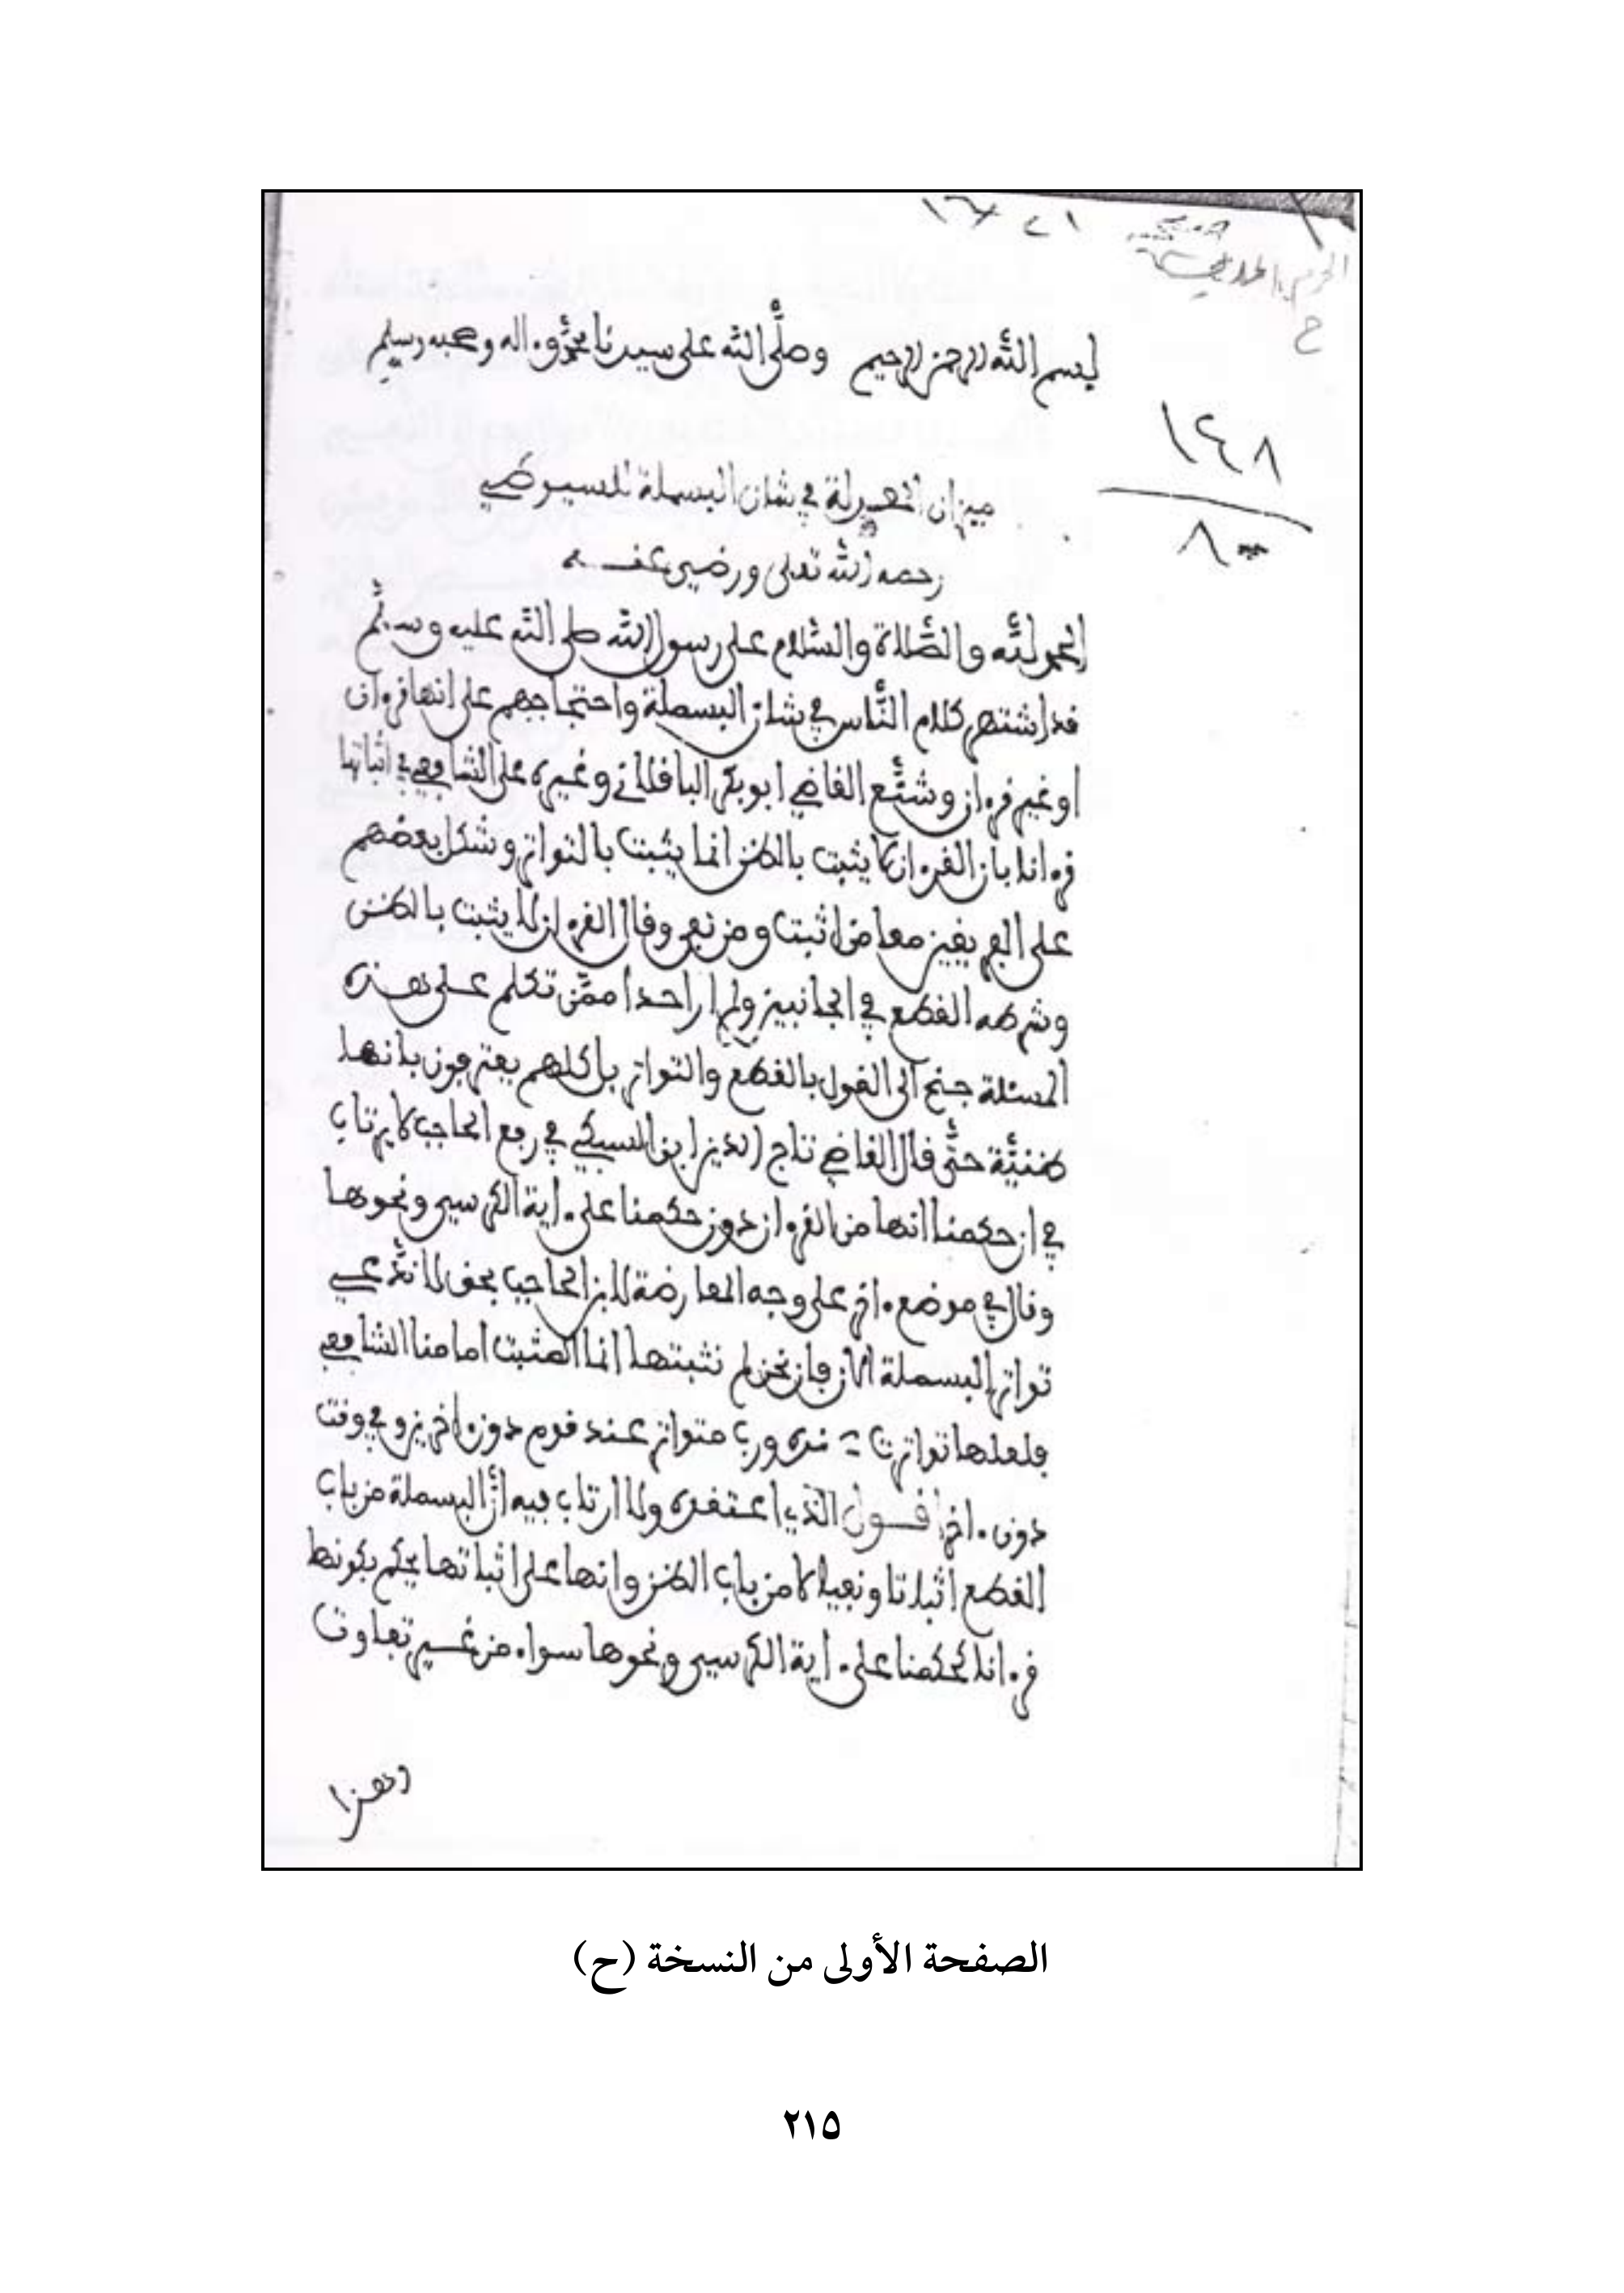 الحرم المدني
ح
بسم الله الرحمن الرحيم وصلى الله على سيدنا محمد وءاله وصحبه وسلم
١٤٨
٨٠
ميزان المعدلة في شان البسملة للسيوطي
رحمه الله تعلى ورضي عنه
الحمد لله والصَّلاة والسَّلام على رسول الله صلى الله عليه وسلَّم
قد اشتهر كلام النَّاس في شان البسملة واحتجاجهم على انها قرءان
او غير قرءان وشنَّع القاضي ابو بكر الباقلاني وغيره على الشافعي في اثباتها
قرءانا بان القرءان لا يثبت بالظن انما يثبت بالتواتر وشكل بعضهم
على الفريقين معا من اثبت ومن نفى وقال القرءان لا يثبت بالظن
وشرطه القطع في الجانبين ولم ار احدا ممَّن تكلم على هذه
المسئلة جنح الى القول بالقطع والتواتر بل كلهم يعترفون بانها
ظنيَّة حتَّى قال القاضي تاج الدين ابن السبكي في رفع الحاجب لا يرتاب
في ان حكمنا انها من القرءان دون حكمنا على ءاية الكرسي ونحوها
وقال في موضع ءاخر على وجه المعارضة لابن الحاجب نحن لا ندَّعي
تواتر البسملة الان فان نحن لم نثبتها انما المثبت امامنا الشافعي
فلعلها تواترت عنده ورب متواتر عند قوم دون ءاخرين وفي وقت
دون ءاخر اقول الذي اعتقده ولا ارتاب فيه انَّ البسملة من باب
القطع اثباتا ونفيا لا من باب الظن وانها على اثباتها يحكم بكونها
قرءانا كحكمنا على ءاية الكرسي ونحوها سواء من غير تفاوت
وهذا
الصفحة الأولى من النسخة (ح)
٢١٥